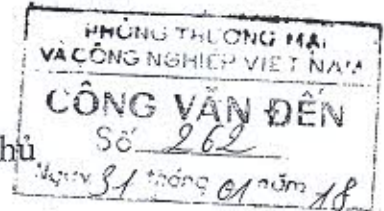 PHÒNG THƯƠNG MẠI
VÀ CÔNG NGHIỆP VIỆT NAM
CÔNG VĂN ĐẾN
Số 262
hủ
Ngày 31 tháng 01 năm 18